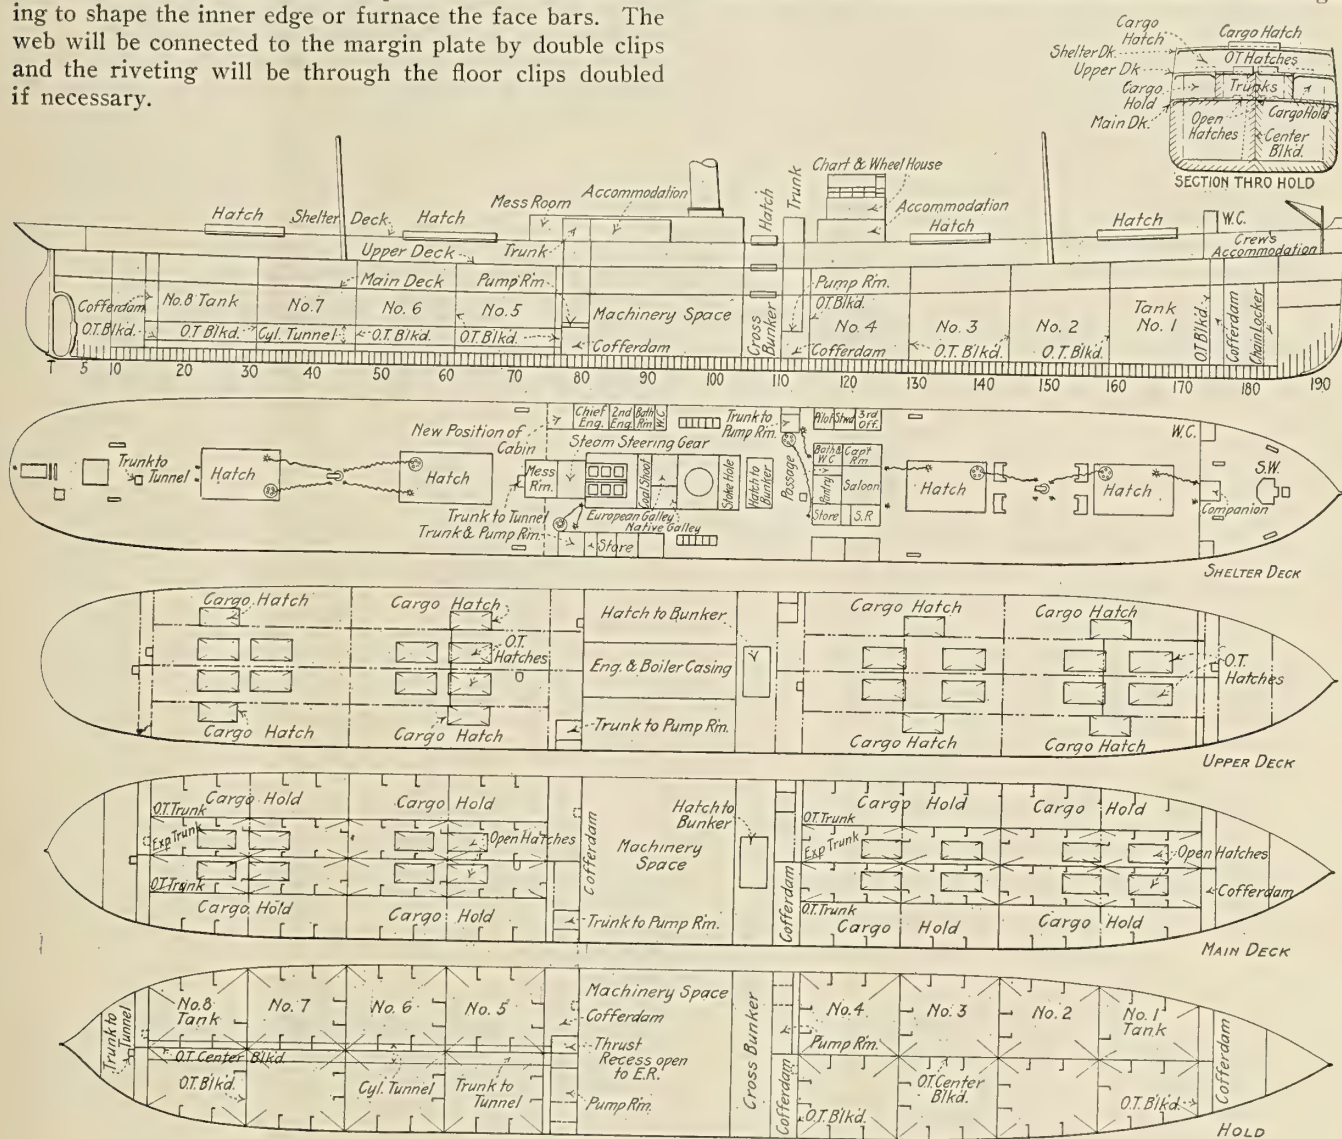 ing to shape the inner edge or furnace the face bars. The
web will be connected to the margin plate by double clips
and the riveting will be through the floor clips doubled
if necessary.
Cargo Hatch
Cargo Hatch
Shelter Dk.
OT Hatches
Upper Dk
Cargo Hold
Trunks
Main Dk.
Open Hatches
Cargo Hold
Center Blkd.
SECTION THRO HOLD
Hatch
Shelter Deck
Hatch
Mess Room
Accommodation
Hatch
Trunk
Chart & Wheel House
Accommodation
Hatch
Hatch
W.C.
Crew's Accommodation
Upper Deck
Trunk
Main Deck
Pump Rm.
Pump Rm.
O.T. Blkd.
Cofferdam
No. 8 Tank
No. 7
No. 6
No. 5
Machinery Space
Cross Bunker
No. 4
No. 3
No. 2
Tank No. 1
O.T. Blkd.
Cofferdam
Chain Locker
O.T. Blkd.
O.T. Blkd.
Cyl. Tunnel
O.T. Blkd.
O.T. Blkd.
Cofferdam
Cofferdam
O.T. Blkd.
O.T. Blkd.
1 5 10 20 30 40 50 60 70 80 90 100 110 120 130 140 150 160 170 180 190
New Position of Cabin
Chief Eng.
2nd Eng.
Bath Rm
W.C
Steam Steering Gear
Trunk to Pump Rm.
Pilot
Stwd
3rd Off.
W.C.
Trunk to Tunnel
Hatch
Hatch
Mess Rm.
Coal Shoot
Stoke Hole
Hatch to Bunker
Passage
Bath & W.C
Capt Rm
Pantry
Saloon
Store
S.R
Hatch
Hatch
S.W.
Companion
Trunk to Tunnel
Trunk & Pump Rm.
European Galley
Native Galley
Store
SHELTER DECK
Cargo Hatch
Cargo Hatch
Hatch to Bunker
Cargo Hatch
Cargo Hatch
O.T. Hatches
Eng. & Boiler Casing
O.T. Hatches
Trunk to Pump Rm.
Cargo Hatch
Cargo Hatch
Cargo Hatch
Cargo Hatch
UPPER DECK
Cargo Hold
Cargo Hold
Hatch to Bunker
Cargo Hold
Cargo Hold
O.T. Trunk
O.T. Trunk
Exp Trunk
Open Hatches
Cofferdam
Machinery Space
Exp Trunk
Open Hatches
O.T. Trunk
Cofferdam
O.T. Trunk
Cofferdam
Cargo Hold
Cargo Hold
Trunk to Pump Rm.
Cargo Hold
Cargo Hold
MAIN DECK
No. 8 Tank
No. 7
No. 6
No. 5
Machinery Space
Cofferdam
Cross Bunker
No. 4
No. 3
No. 2
No. 1 Tank
Trunk to Tunnel
O.T. Center Blkd.
Thrust Recess open to E.R.
Pump Rm.
Cofferdam
O.T. Blkd.
Cyl. Tunnel
Trunk to Tunnel
Pump Rm.
Cofferdam
O.T. Blkd.
O.T. Center Blkd.
O.T. Blkd.
HOLD